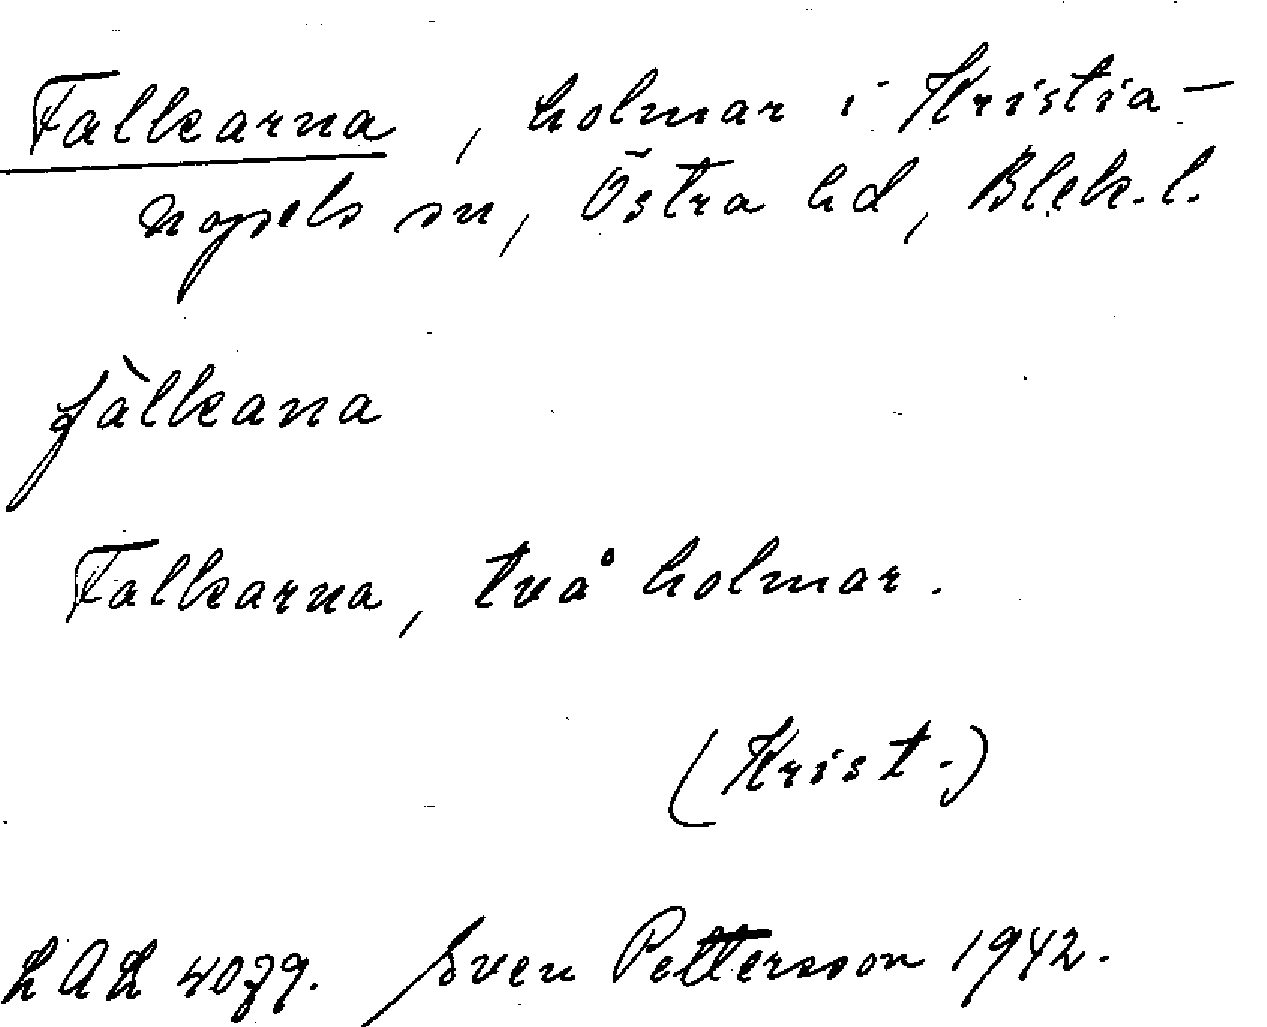 Falkarna, holmar i Kristia-
nopels sn, Östra hd, Blek. l.
fàlkana
Falkarna, två holmar.
(Krist.)
LAL 4079. Sven Pettersson 1942.